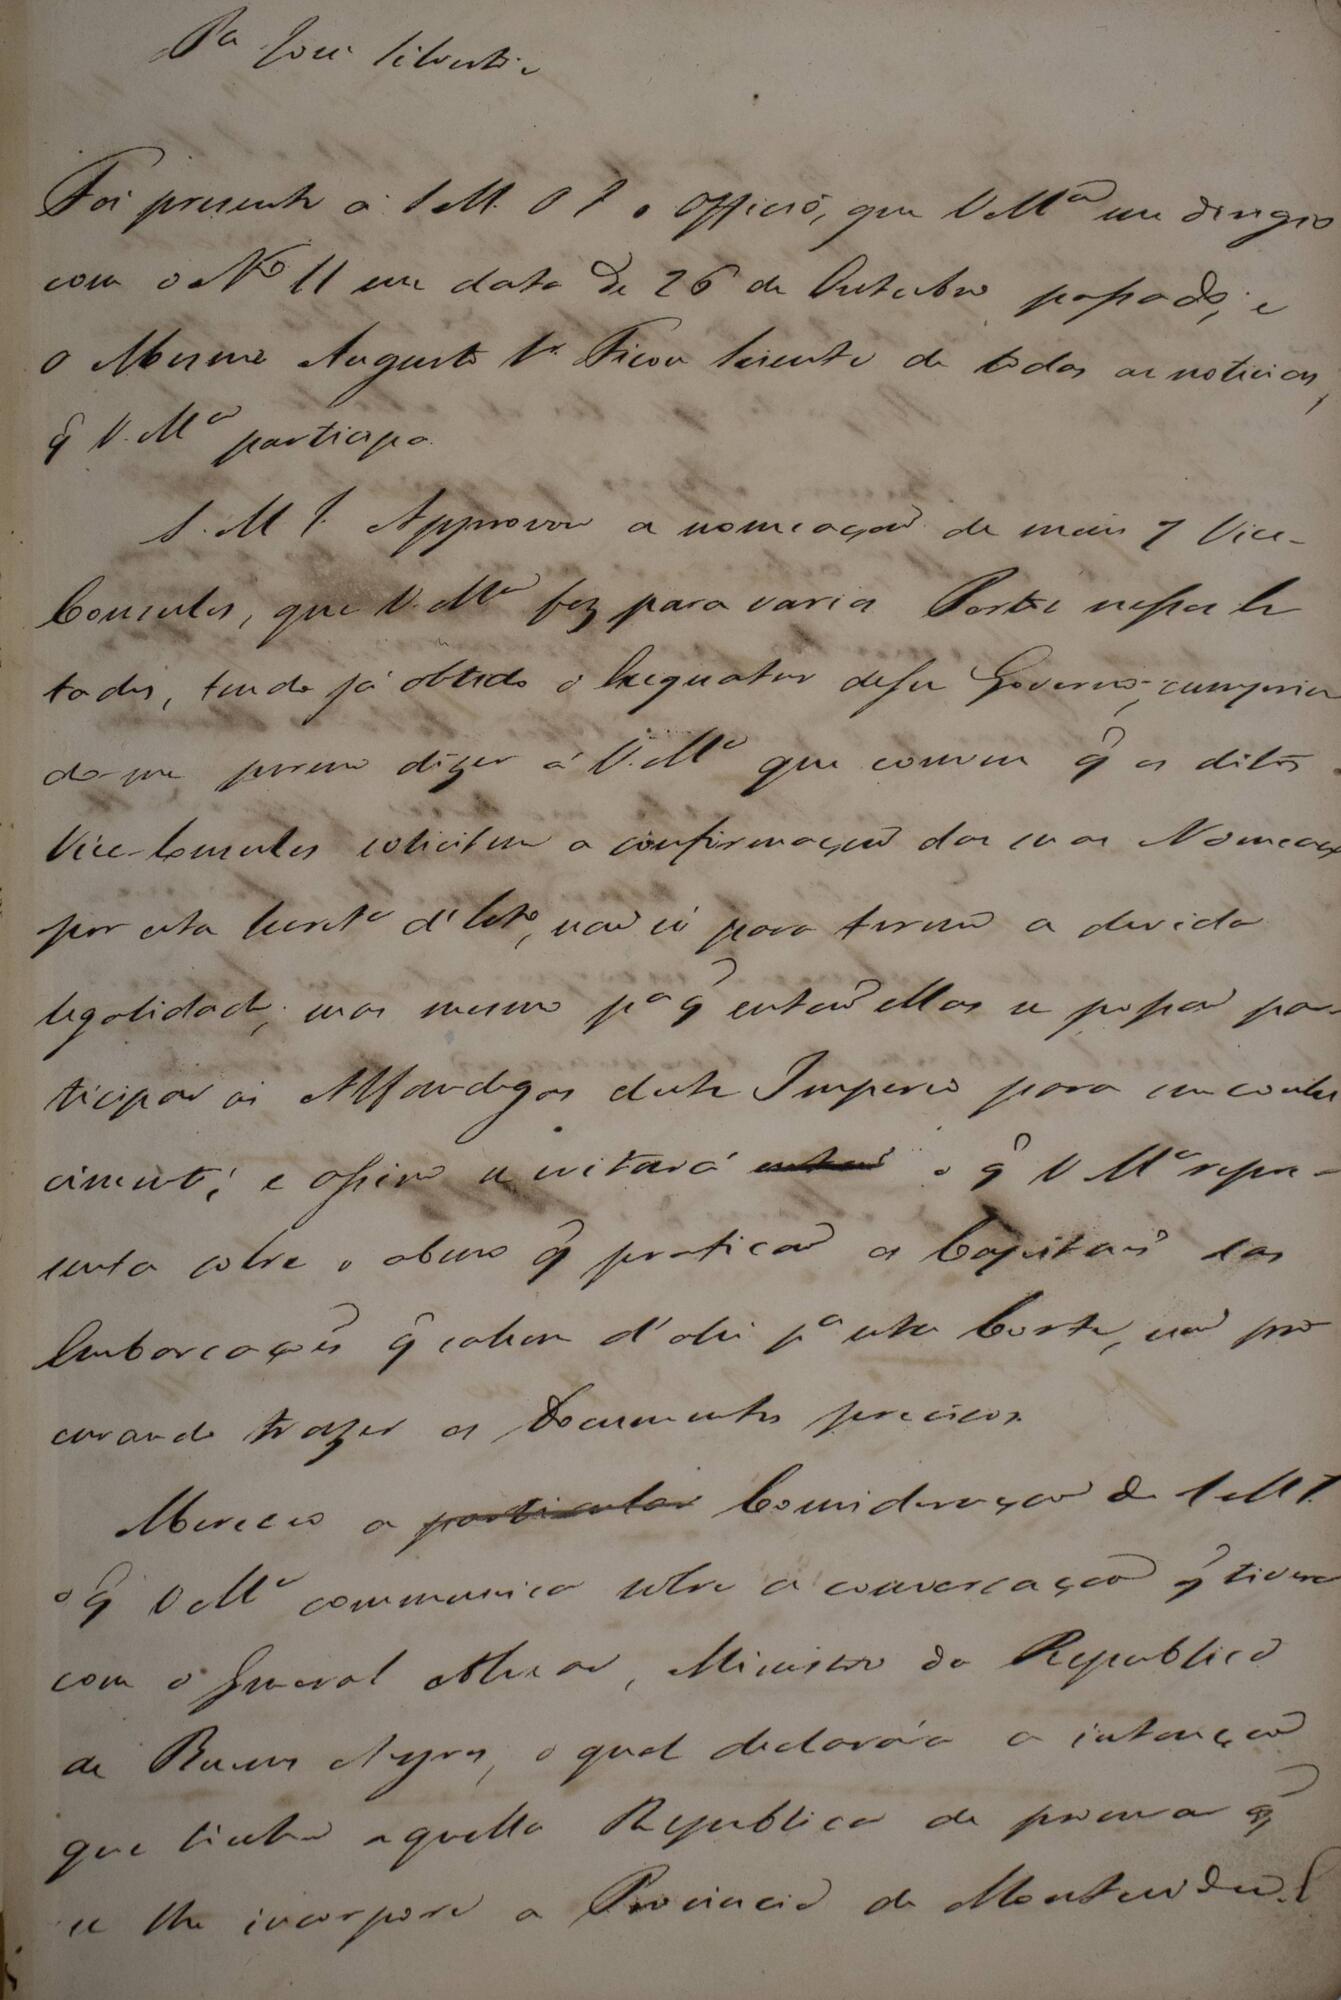 Pa José Silvestre
Foi presente a S M. O I. o Officio, que V Mce me dirigio
com o No 11 em data de 26 de Outubro passado; e
o Mesmo Augusto Sr. Ficou sciente de todas as noticias,
q̃ V. Mce participa.
S. M I. Approvou a nomeação de mais 7 Vice-
Consules, que V. Mce fez para varios Portos nesses Es
tados, tendo já obtido o Exequatur desse Governo; cumprin
do-me porem dizer á V. Mce que convem q̃ os ditos
Vice-Consules solicitem a confirmação das suas Nomeaçoẽs
por esta Secreta d'Esto, naõ só para terem a devida
legalidade; mas mesmo pa q̃ entaõ ellas se possaõ par-
ticipar ás Alfandegas deste Imperio para seu conhe
cimento; e assim se evitará o q̃ V Mce repre-
senta sobre o abuso q̃ praticaõ os Capitaẽs das
Embarcaçoẽs q̃ sahem d'ahi pa esta Corte, naõ pro
curando trazer os Documentos precisos.
Mereceo a particular Consideraçaõ de S M I.
o q̃ V Mce communica sobre a conversaçaõ q̃ tivera
com o General Alvear, Ministro da Republica
de Buenos Ayres, o qual declarára a intençaõ
que tinha aquella Republica de provocar q̃
se lhe incorpore a Provincia de Montevideo. E